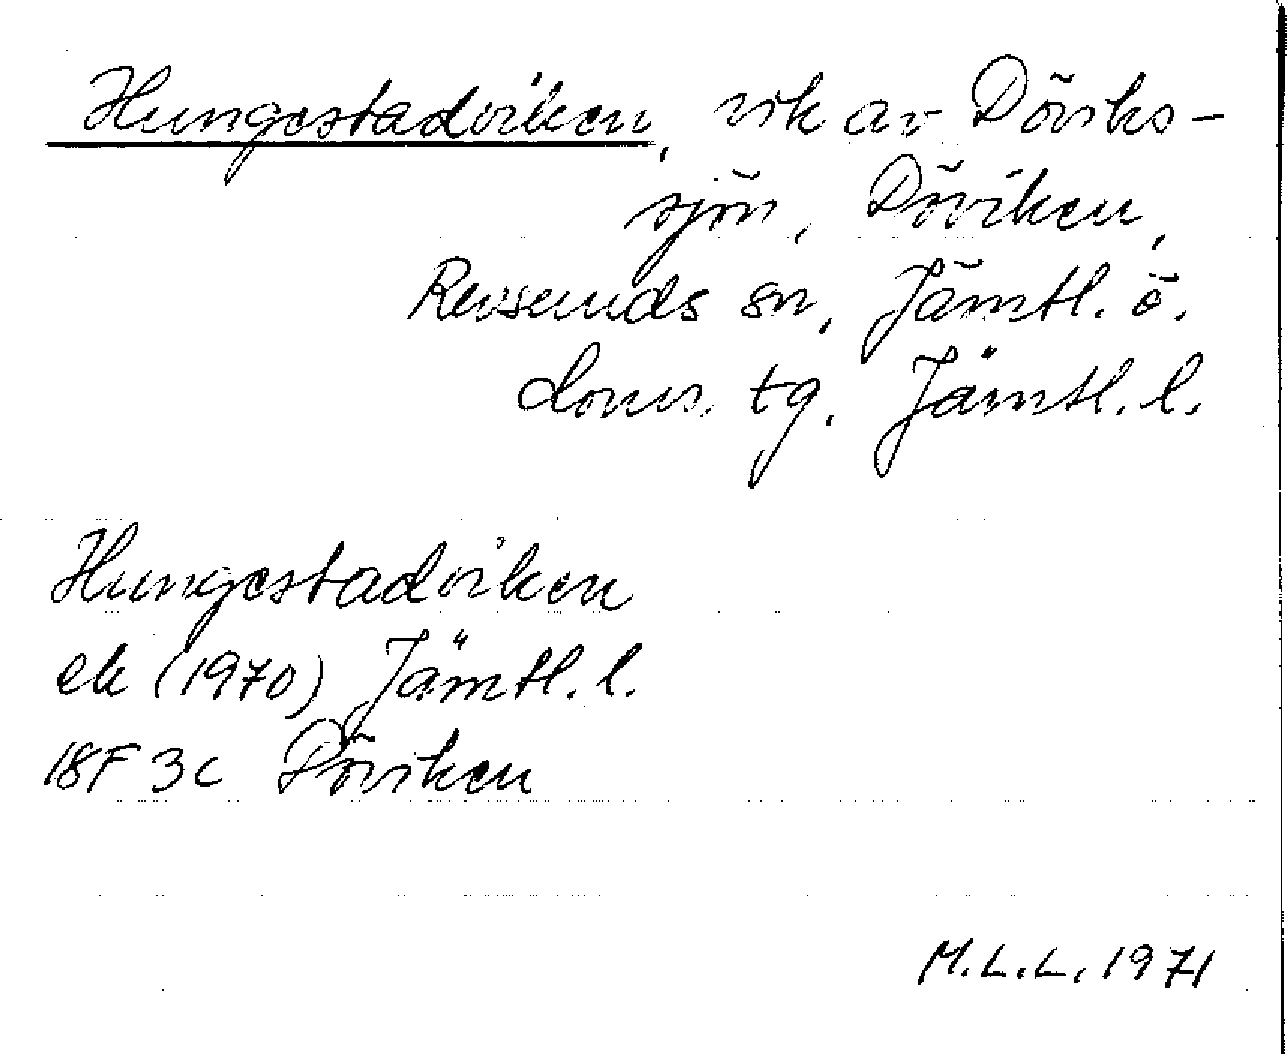 Hungestadviken, vik av Döviks-
sjön, Döviken,
Revsunds sn, Jämtl. ö.
doms. tg. Jämtl. l.
Hungestadviken
ek (1970) Jämtl. l.
18F 3c Döviken
M.L.L. 1971